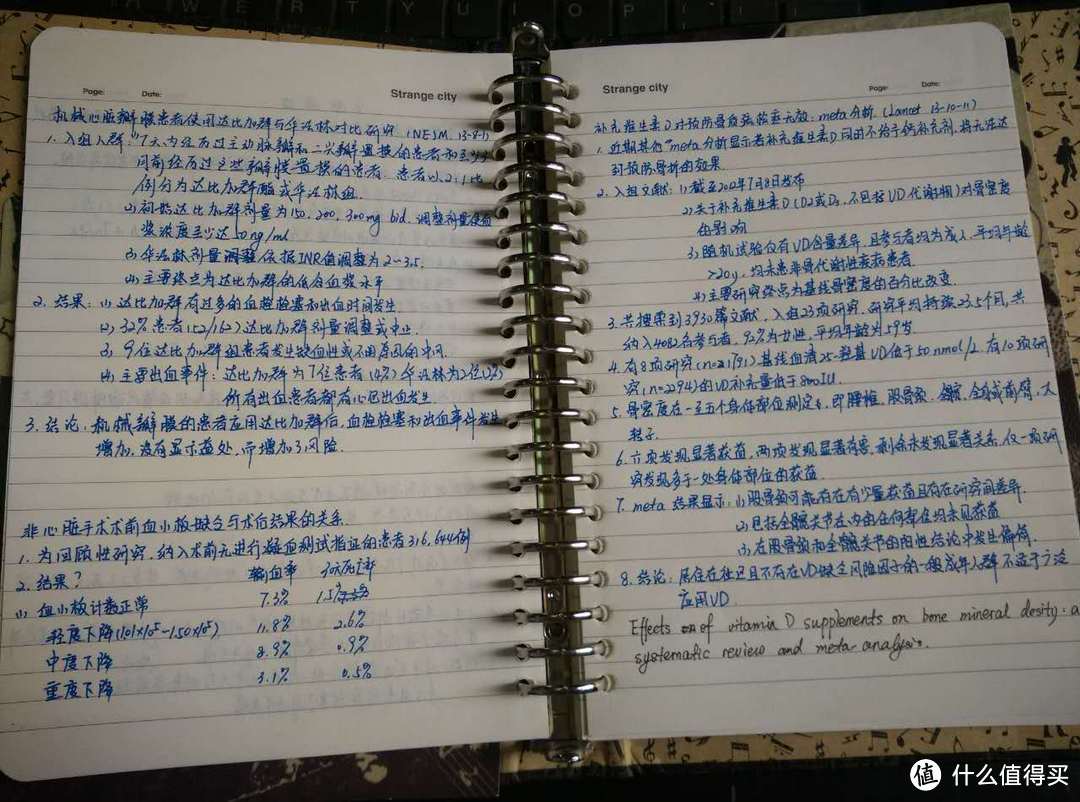 TYUIOP
Page: Date: Strange city
机械心脏瓣膜患者使用达比加群与华法林对比研究 (NEJM. 13-8-1)
1. 入组人群: 1) 7天内经历过主动脉瓣和二尖瓣置换的患者和至少3
月前经历过这些瓣膜置换的患者. 患者以2:1比
例分为达比加群酯或华法林组.
2) 初始达比加群剂量为150. 200. 300mg bid. 调整剂量使血
浆浓度至少达50ng/ml
3) 华法林剂量调整依据INR值调整为2-3.5.
4) 主要终点为达比加群的低谷血浆水平
2. 结果: 1) 达比加群有过多的血栓栓塞和出血时间发生
2) 32%患者(52/162)达比加群剂量调整或中止.
3) 9位达比加群组患者发生缺血性或不明原因的中风.
4) 主要出血事件: 达比加群为7位患者(4%) 华法林为2位(2%)
所有出血患者都有心包出血发生
3. 结论: 机械瓣膜的患者应用达比加群后, 血栓栓塞和出血事件发生
增加, 没有显示益处, 而增加了风险.
非心脏手术术前血小板缺乏与术后结果的关系.
1. 为回顾性研究. 纳入术前无进行凝血测试指征的患者316,644例
2. 结果? 输血率 30天死亡率
1) 血小板计数正常 7.3% 1.5%
轻度下降(101×10⁵-150×10⁵) 11.8% 2.6%
中度下降 8.9% 0.9%
重度下降 3.1% 0.5%
Strange city Page: Date:
补充维生素D对预防骨质疏松症无效: meta分析. (Lancet 13-10-11)
1. 近期其他meta分析显示若补充维生素D同时不给予钙补充剂, 将无法达
到预防骨折的效果.
2. 入组文献: 1) 截至2012年7月8日发布
2) 关于补充维生素D (D2或D3, 不包括VD代谢物) 对骨密度
的影响
3) 随机试验仅有VD含量差异, 且参与者均为成人. 平均年龄
>20y, 均未患非骨代谢性疾病患者.
4) 主要研究终点为基线骨密度的百分比改变.
3. 共搜索到3930篇文献, 入组23项研究. 研究平均持续23.5个月, 共
纳入4082名参与者, 92%为女性, 平均年龄为59岁
4. 有8项研究(n=21791)基线血清25-羟基VD低于50nmol/L. 有10项研
究(n=2294)的VD补充量低于800IU.
5. 骨密度在一至五个身体部位测定, 即腰椎, 股骨颈, 全髋, 全身或前臂, 大
转子.
6. 六项发现显著获益, 两项发现显著有害, 剩余未发现显著关系, 仅一项研
究发现多于一处身体部位的获益.
7. meta结果显示: 1) 股骨颈可能存在有少量获益且存在研究间差异.
2) 包括全髋关节在内的任何部位均未见获益
3) 在股骨颈和全髋关节的阳性结论中发生偏倚.
8. 结论: 居住在社区且不存在VD缺乏风险因子的一般成年人群不适于广泛
应用VD.
Effects of vitamin D supplements on bone mineral desity: a
systematic review and meta analysis.
值 什么值得买